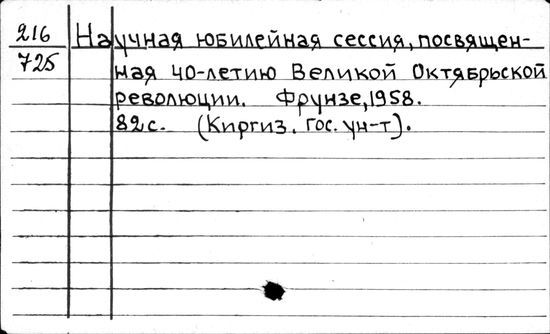 216
725
Научная юбилейная сессия, посвящен-
ная 40-летию Великой Октябрьской
революции. Фрунзе, 1958.
82с. (Киргиз. гос. ун-т).